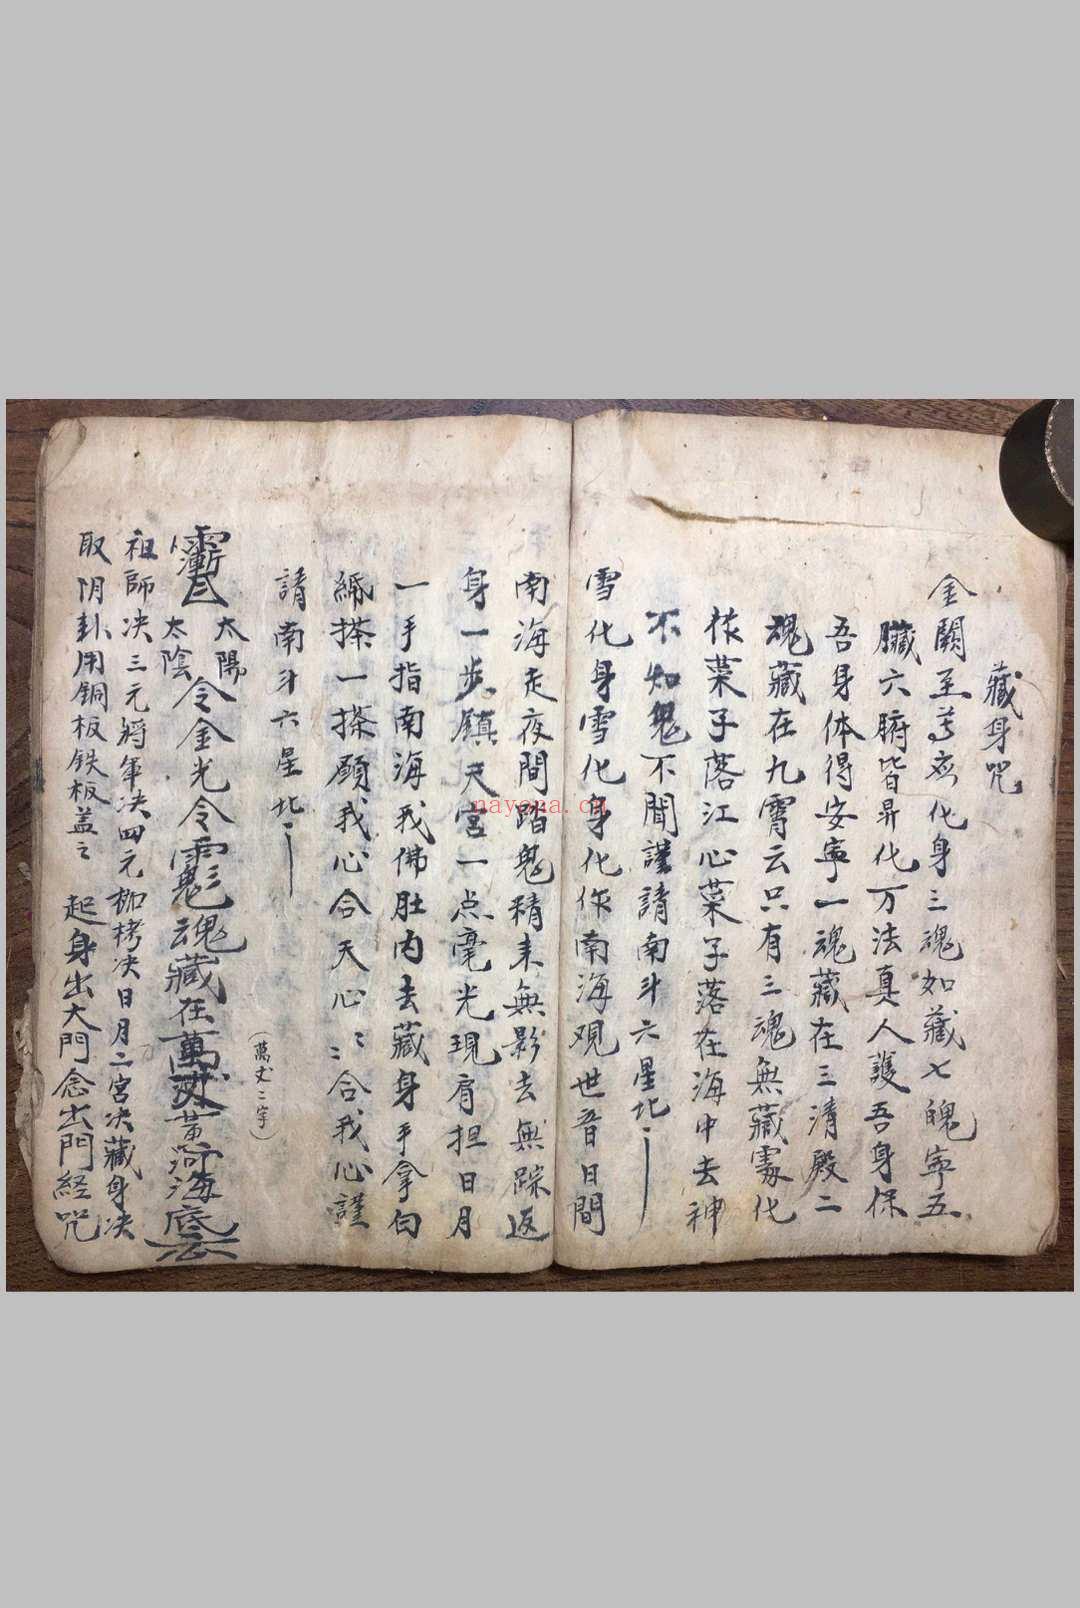 藏身咒
金闕至尊應化身三魂如藏七魄寧五
臟六腑皆昇化万法真人護吾身保
吾身体得安寧一魂藏在三清殿二
魂藏在九霄云只有三魂無藏處化
菜子落江心菜子落在海中去神
不知鬼不聞謹請南斗六星北
雪化身雪化身化作南海观世音日間
南海走夜間踏鬼精来無影去無踪返
身一步鎮天宮一点毫光現肩担日月
一手指南海我佛肚内去藏身手拿白
搽一搽願我心合天心合我心謹
請南斗六星北
(萬丈二字)
太陽
太陰
令金光令魂藏在萬丈黃河海底云
祖師决三元將軍决四元枷栲决日月二宮决藏身决
取阴卦用铜板铁板盖之 起身出大門念出門経咒
nayona.cn